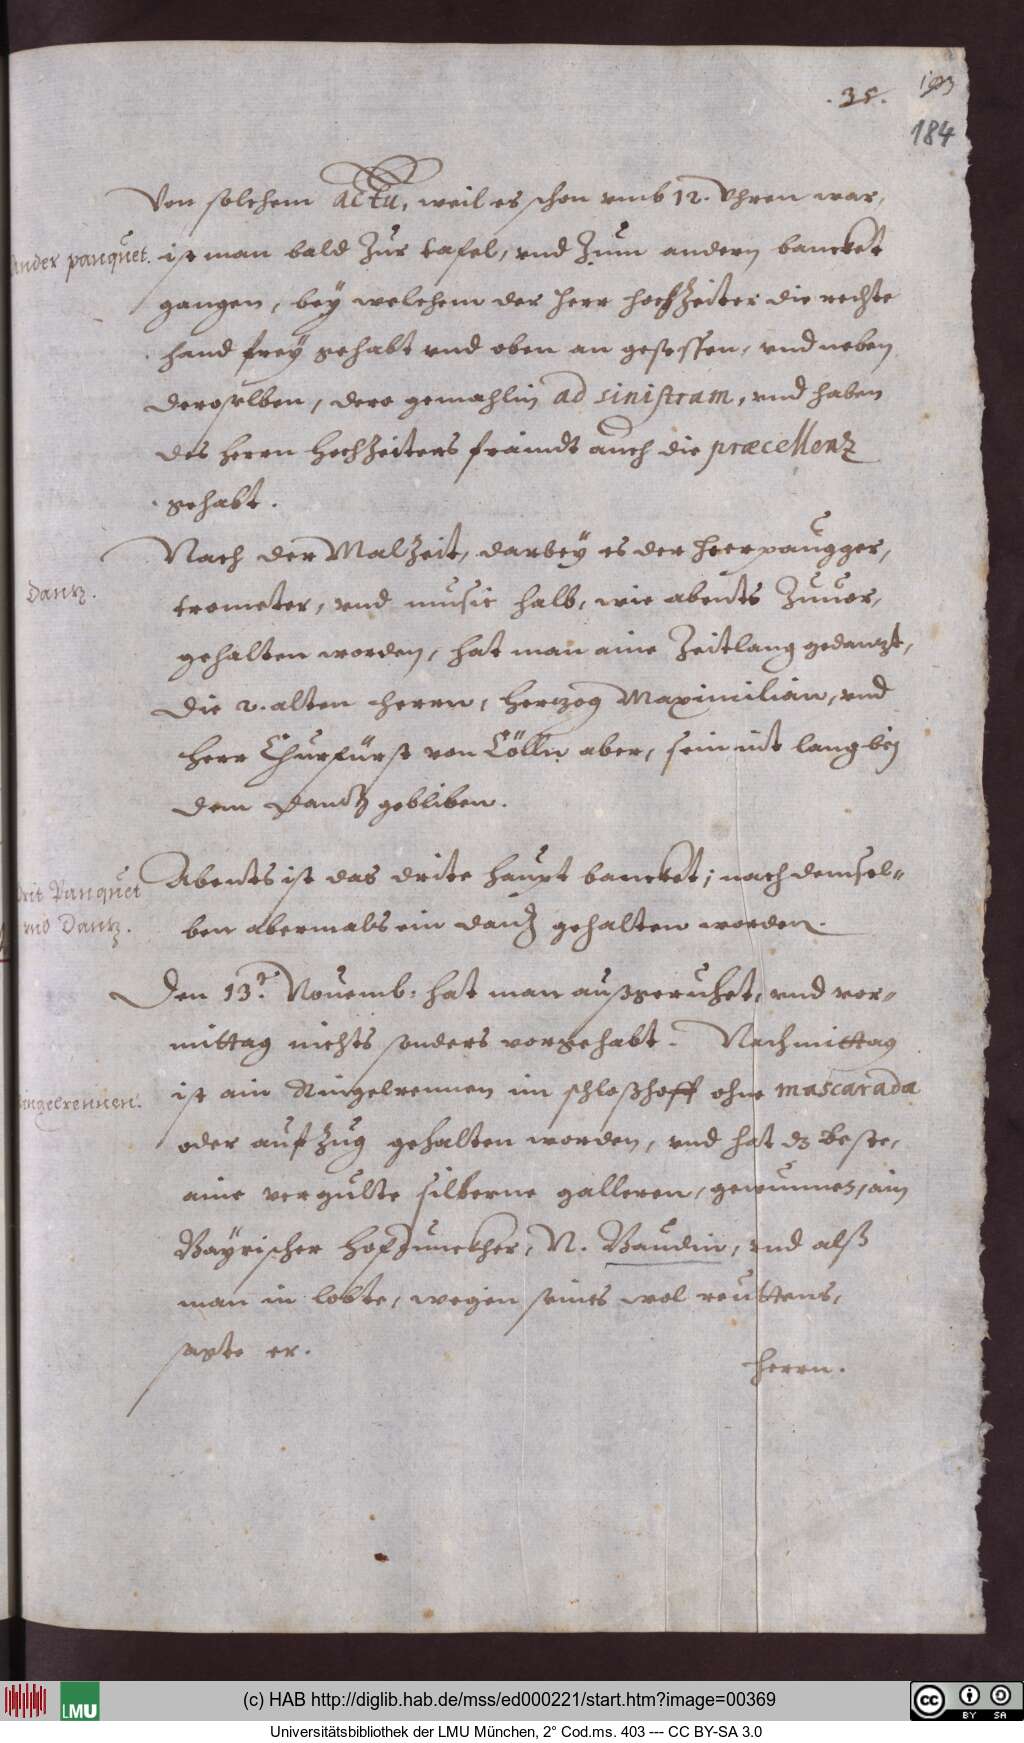 . 35.
193
184
Von solchem actu, weil es schon vmb 12. Vhren war,
Ander panquet.
ist man bald zur tafel, vnd zum andern bancket
gangen, bey welchem der Herr Hochzeiter die rechte
hand frey gehabt vnd oben an gesessen, vnd neben
deroselben, dero gemahlin ad sinistram, vnd haben
des Herrn Hochzeiters fraindt auch die præcellentz
gehabt.
Nach der Malzeit, darbey es der Heerpaugger,
Dantz.
trometer, vnd music halb, wie abents zuuor,
gehalten worden, hat man aine Zeitlang gedanzt,
die 2. alten Herrn, Hertzog Maximilian, vnd
Herr Churfürst von Cölln aber, sein nit lang bej
dem Dantz gebliben.
Drit Panquet
vnd Dantz.
Abents ist das drite haupt bancket; nach demsel=
ben abermals ein dantz gehalten worden.
Den 13.t Nouemb: hat man außgeruhet, vnd vor=
mittag nichts sonders vorgehabt. Nachmittag
Ringelrennen.
ist ain Ringelrennen im schloßhoff ohne mascarada
oder aufzug gehalten worden, vnd hat dz beste,
aine vergulte silberne galleren, gewunnen, ain
Bayrischer Hofjunckher, N. Vaudin, vnd alß
man in lobte, wegen seines wol reuttens,
sagte er.
Herrn.
(c) HAB http://diglib.hab.de/mss/ed000221/start.htm?image=00369
LMU
cc BY SA
Universitätsbibliothek der LMU München, 2° Cod.ms. 403 --- CC BY-SA 3.0